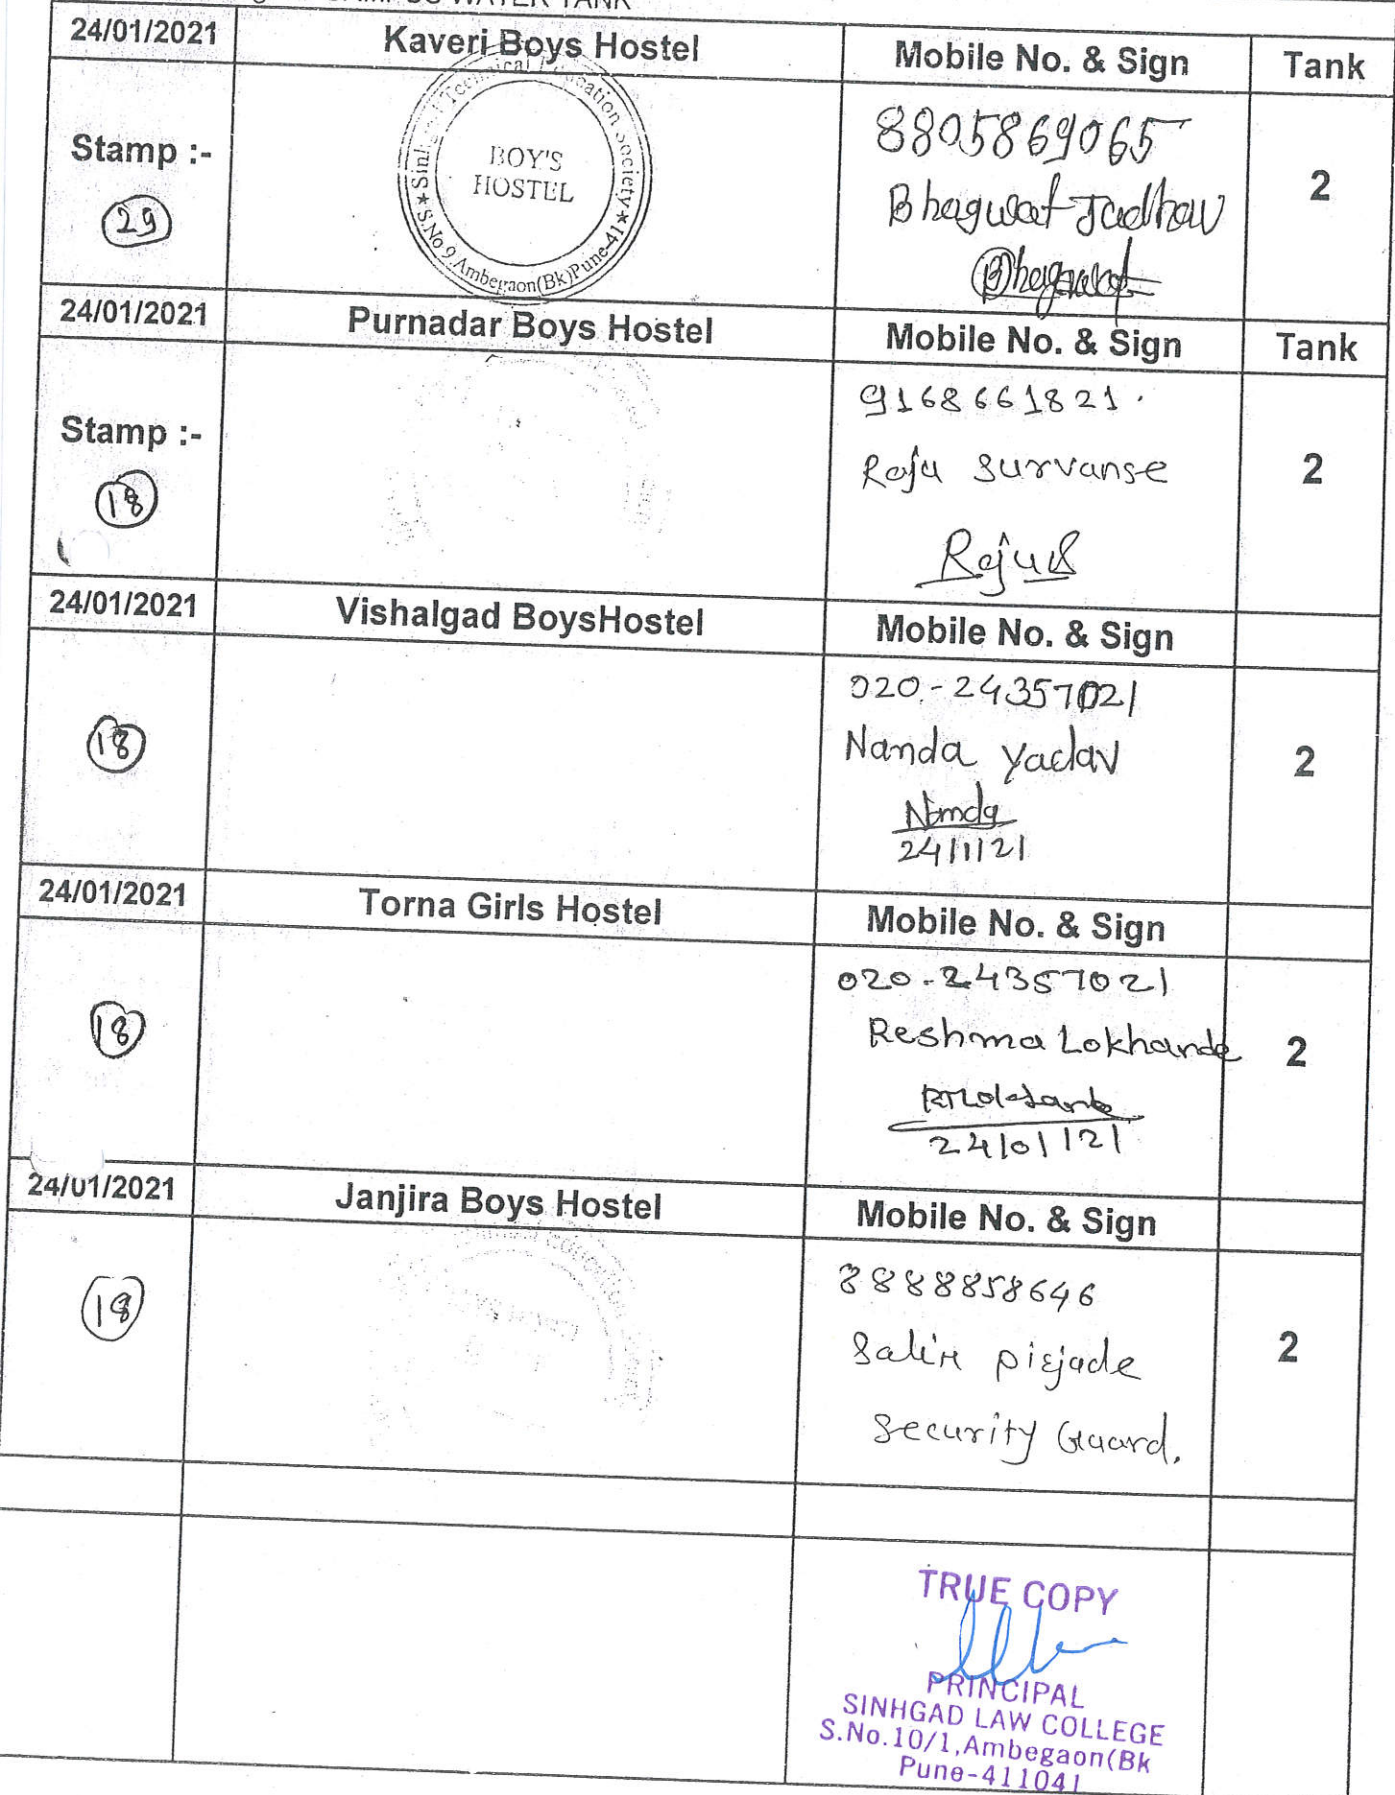 WATER TANK
24/01/2021 Kaveri Boys Hostel Mobile No. & Sign Tank
Stamp :-
29
BOY'S
HOSTEL
★S.No.9, Ambegaon(Bk)Pune-41★
8805869065
Bhagwat Jadhav
Bhagwat
2
24/01/2021 Purnadar Boys Hostel Mobile No. & Sign Tank
Stamp :-
18
9168661821.
Raju Survanse
RajuS
2
24/01/2021 Vishalgad BoysHostel Mobile No. & Sign
18
020-24357021
Nanda Yadav
Nanda
24/1/21
2
24/01/2021 Torna Girls Hostel Mobile No. & Sign
18
020-24357021
Reshma Lokhande
24/01/21
2
24/01/2021 Janjira Boys Hostel Mobile No. & Sign
18
8888858646
pirjade
Security Guard.
2
TRUE COPY
PRINCIPAL
SINHGAD LAW COLLEGE
S.No.10/1,Ambegaon(Bk
Pune-411041